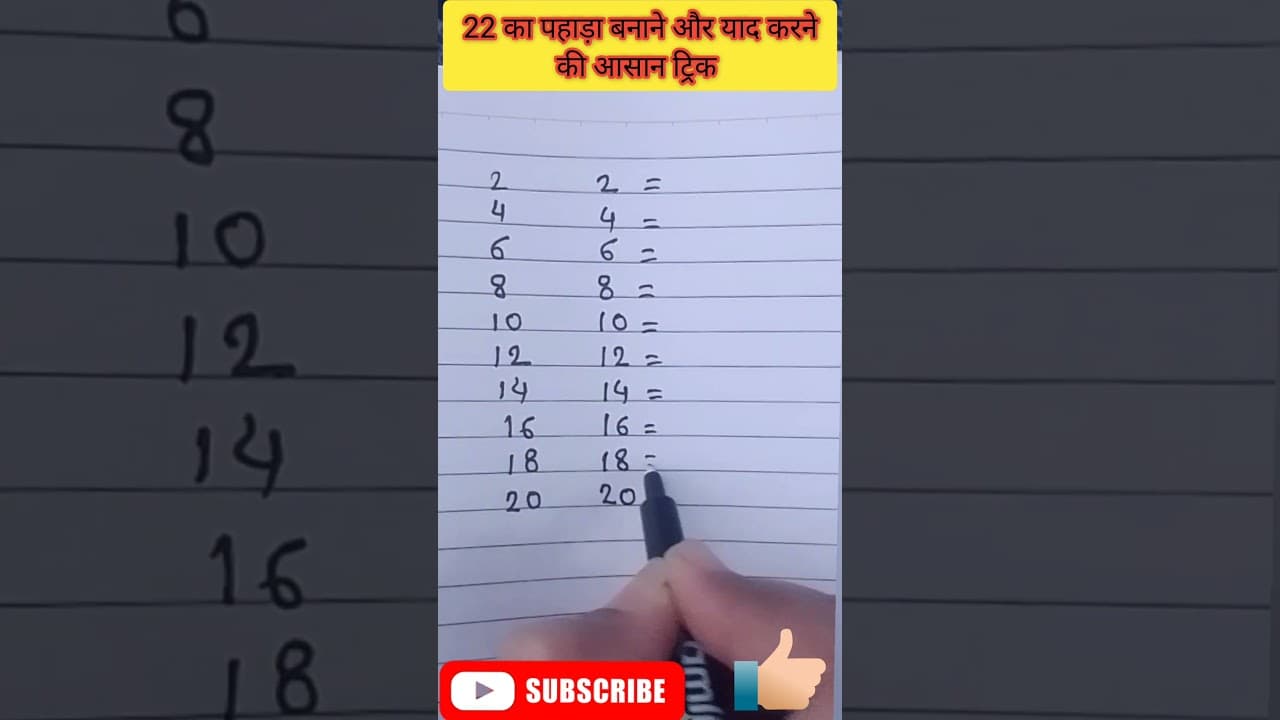 22 का पहाड़ा बनाने और याद करने
की आसान ट्रिक
2 2 =
4 4 =
6 6 =
8 8 =
10 10 =
12 12 =
14 14 =
16 16 =
18 18 =
20 20
SUBSCRIBE
8
10
12
14
16
18